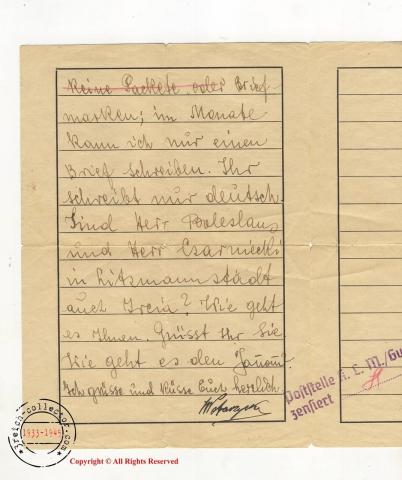 keine Packete, oder Brief-
marken; im Monate
kann ich nur einen
Brief schreiben. Ihr
schreibt nur deutsch.
Sind Herr Boleslaus
und Herr Czarniecki
in Litzmannstadt
auch Irena? Wie geht
es Ihnen. Grüsst Ihr Sie.
Wie geht es den
Ich grüsse und küsse Euch herzlich
Poststelle K. L. M./Gu
zensiert
3reich-collector.com
1933-1945
Copyright © All Rights Reserved